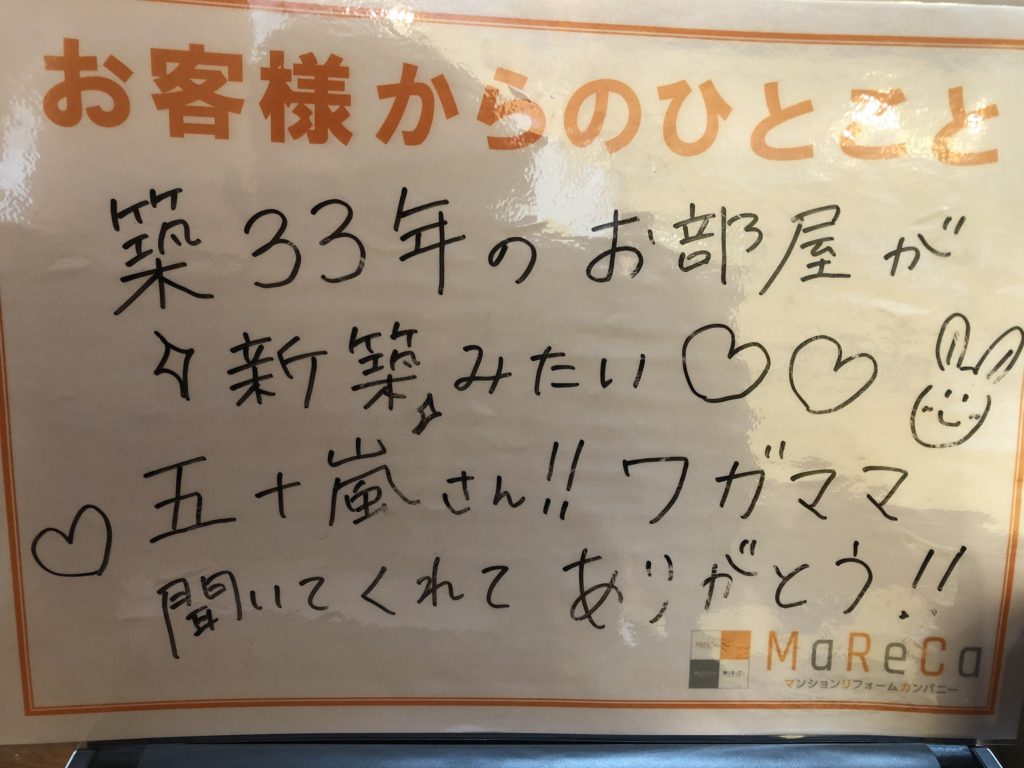 お客様からのひとこと
築33年のお部屋が
新築みたい♡♡
五十嵐さん!! ワガママ
聞いてくれて ありがとう!!
MaReCa
マンションリフォームカンパニー